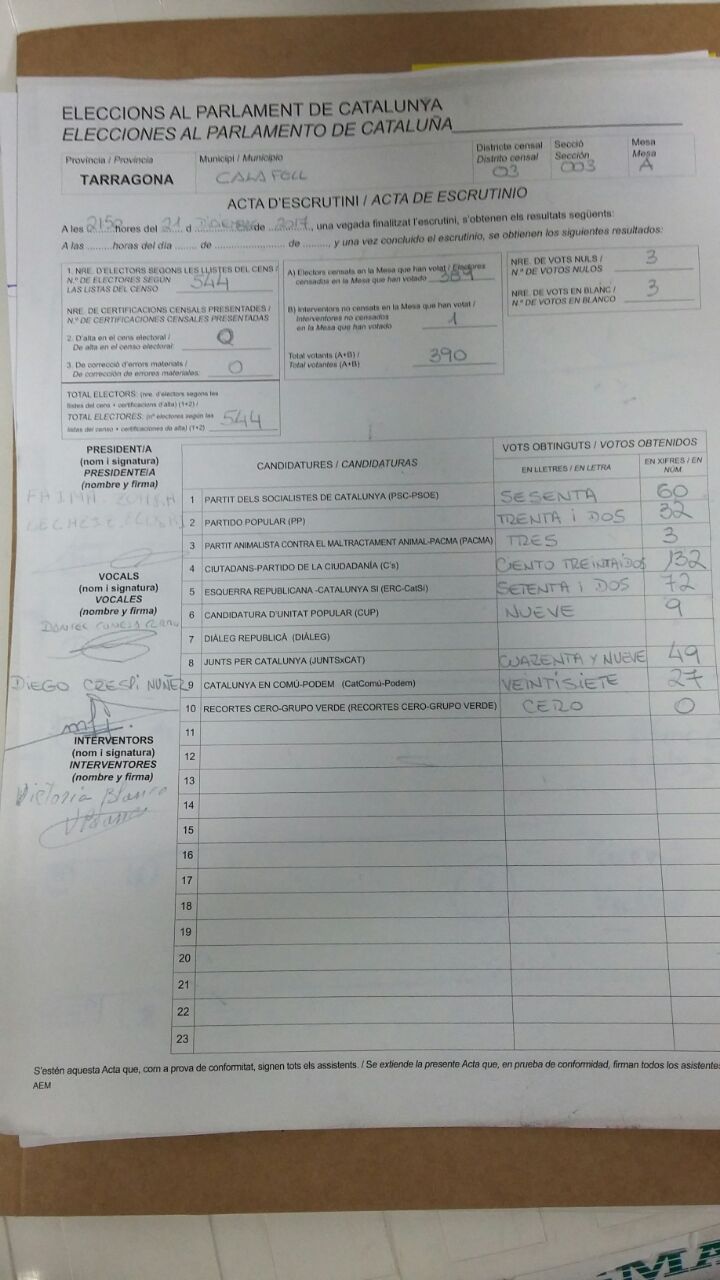 ELECCIONS AL PARLAMENT DE CATALUNYA
ELECCIONES AL PARLAMENTO DE CATALUÑA
Província / Provincia
TARRAGONA
Municipi / Municipio
CALAFELL
Districte censal
Distrito censal
03
Secció
Sección
003
Mesa
Mesa
A
ACTA D'ESCRUTINI / ACTA DE ESCRUTINIO
A les 2150 hores del 21 d DICIEMBRE de 2017, una vegada finalitzat l'escrutini, s'obtenen els resultats següents:
A las ......... horas del día ...... de .................... de ........., y una vez concluido el escrutinio, se obtienen los siguientes resultados:
1. NRE. D'ELECTORS SEGONS LES LLISTES DEL CENS /
N.º DE ELECTORES SEGÚN
LAS LISTAS DEL CENSO 544
NRE. DE CERTIFICACIONS CENSALS PRESENTADES /
N.º DE CERTIFICACIONES CENSALES PRESENTADAS
2. D'alta en el cens electoral /
De alta en el censo electoral: 0
3. De correcció d'errors materials /
De corrección de errores materiales: 0
TOTAL ELECTORS: (nre. d'electors segons les
llistes del cens + certificacions d'alta) (1+2) /
TOTAL ELECTORES: (nº electores según las
listas del censo + certificaciones de alta) (1+2) 544
A) Electors censats en la Mesa que han votat / Electores
censados en la Mesa que han votado 389
B) Interventors no censats en la Mesa que han votat /
Interventores no censados
en la Mesa que han votado 1
Total votants (A+B) /
Total votantes (A+B) 390
NRE. DE VOTS NULS /
N.º DE VOTOS NULOS 3
NRE. DE VOTS EN BLANC /
N.º DE VOTOS EN BLANCO 3
PRESIDENT/A
(nom i signatura)
PRESIDENTE/A
(nombre y firma)
VOCALS
(nom i signatura)
VOCALES
(nombre y firma)
DIEGO CRESPI NUÑEZ
INTERVENTORS
(nom i signatura)
INTERVENTORES
(nombre y firma)
Victoria Blanco
CANDIDATURES / CANDIDATURAS
VOTS OBTINGUTS / VOTOS OBTENIDOS
EN LLETRES / EN LETRA
EN XIFRES / EN NÚM.
1 PARTIT DELS SOCIALISTES DE CATALUNYA (PSC-PSOE) SESENTA 60
2 PARTIDO POPULAR (PP) TRENTA i DOS 32
3 PARTIT ANIMALISTA CONTRA EL MALTRACTAMENT ANIMAL-PACMA (PACMA) TRES 3
4 CIUTADANS-PARTIDO DE LA CIUDADANÍA (C's) CIENTO TREINTAIDOS 132
5 ESQUERRA REPUBLICANA -CATALUNYA SI (ERC-CatSí) SETENTA i DOS 72
6 CANDIDATURA D'UNITAT POPULAR (CUP) NUEVE 9
7 DIÀLEG REPUBLICÀ (DIÀLEG)
8 JUNTS PER CATALUNYA (JUNTSxCAT) CUARENTA Y NUEVE 49
9 CATALUNYA EN COMÚ-PODEM (CatComú-Podem) VEINTISIETE 27
10 RECORTES CERO-GRUPO VERDE (RECORTES CERO-GRUPO VERDE) CERO 0
11
12
13
14
15
16
17
18
19
20
21
22
23
S'estén aquesta Acta que, com a prova de conformitat, signen tots els assistents. / Se extiende la presente Acta que, en prueba de conformidad, firman todos los asistentes
AEM